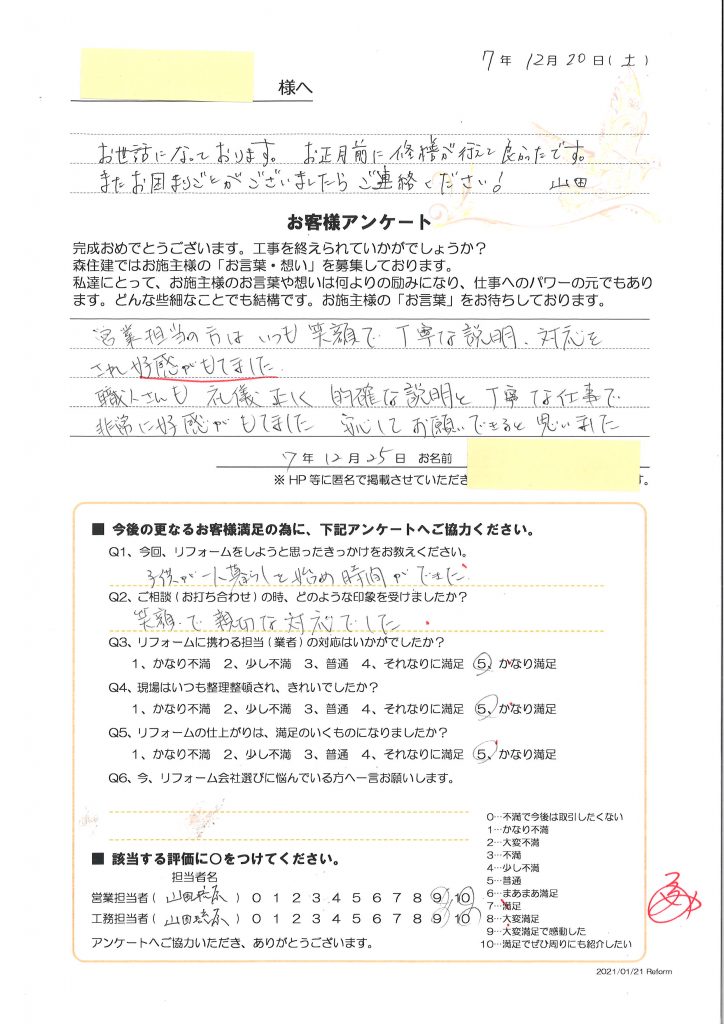 7年 12月 20日(土)
様へ
お世話になっております。 お正月前に修繕が行えて良かったです。
またお困まりごとがございましたらご連絡ください! 山田
お客様アンケート
完成おめでとうございます。工事を終えられていかがでしょうか?
森住建ではお施主様の「お言葉・想い」を募集しております。
私達にとって、お施主様のお言葉や想いは何よりの励みになり、仕事へのパワーの元でもあり
ます。どんな些細なことでも結構です。お施主様の「お言葉」をお待ちしております。
営業担当の方は いつも 笑顔で 丁寧な説明、対応を
され 好感がもてました
職人さんも 礼儀正しく 的確な説明と 丁寧な仕事で
非常に好感が もてました 安心して お願いできると 思いました
7年 12月 25日 お名前
※HP等に匿名で掲載させていただき す。
■ 今後の更なるお客様満足の為に、下記アンケートへご協力ください。
Q1、今回、リフォームをしようと思ったきっかけをお教えください。
子供が一人暮らしを始め時間ができた
Q2、ご相談(お打ち合わせ)の時、どのような印象を受けましたか?
笑顔で親切な対応でした
Q3、リフォームに携わる担当(業者)の対応はいかがでしたか?
1、かなり不満 2、少し不満 3、普通 4、それなりに満足 5、かなり満足
Q4、現場はいつも整理整頓され、きれいでしたか?
1、かなり不満 2、少し不満 3、普通 4、それなりに満足 5、かなり満足
Q5、リフォームの仕上がりは、満足のいくものになりましたか?
1、かなり不満 2、少し不満 3、普通 4、それなりに満足 5、かなり満足
Q6、今、リフォーム会社選びに悩んでいる方へ一言お願いします。
0…不満で今後は取引したくない
1…かなり不満
2…大変不満
3…不満
4…少し不満
5…普通
6…まあまあ満足
7…満足
8…大変満足
9…大変満足で感動した
10…満足でぜひ周りにも紹介したい
■ 該当する評価に○をつけてください。
担当者名
営業担当者( 山田 ) 0 1 2 3 4 5 6 7 8 9 10
工務担当者( 山田 ) 0 1 2 3 4 5 6 7 8 9 10
アンケートへご協力いただき、ありがとうございます。
2021/01/21 Reform